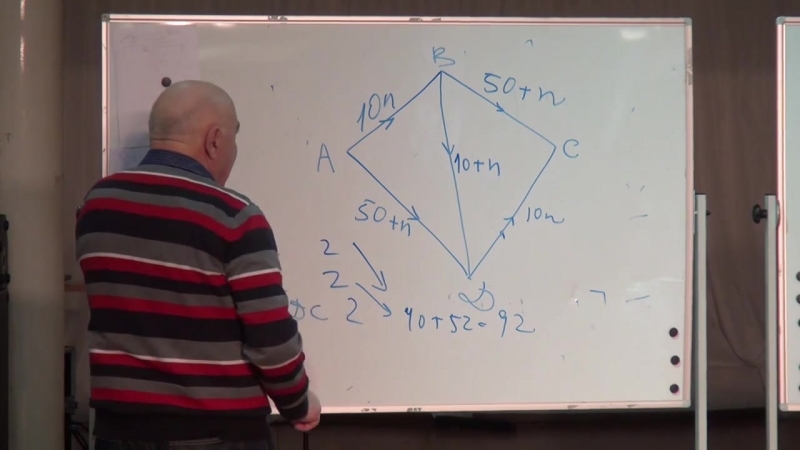 B
50+n
10n
A
C
10+n
50+n
10n
2
2
D
DC 2
40+52=92